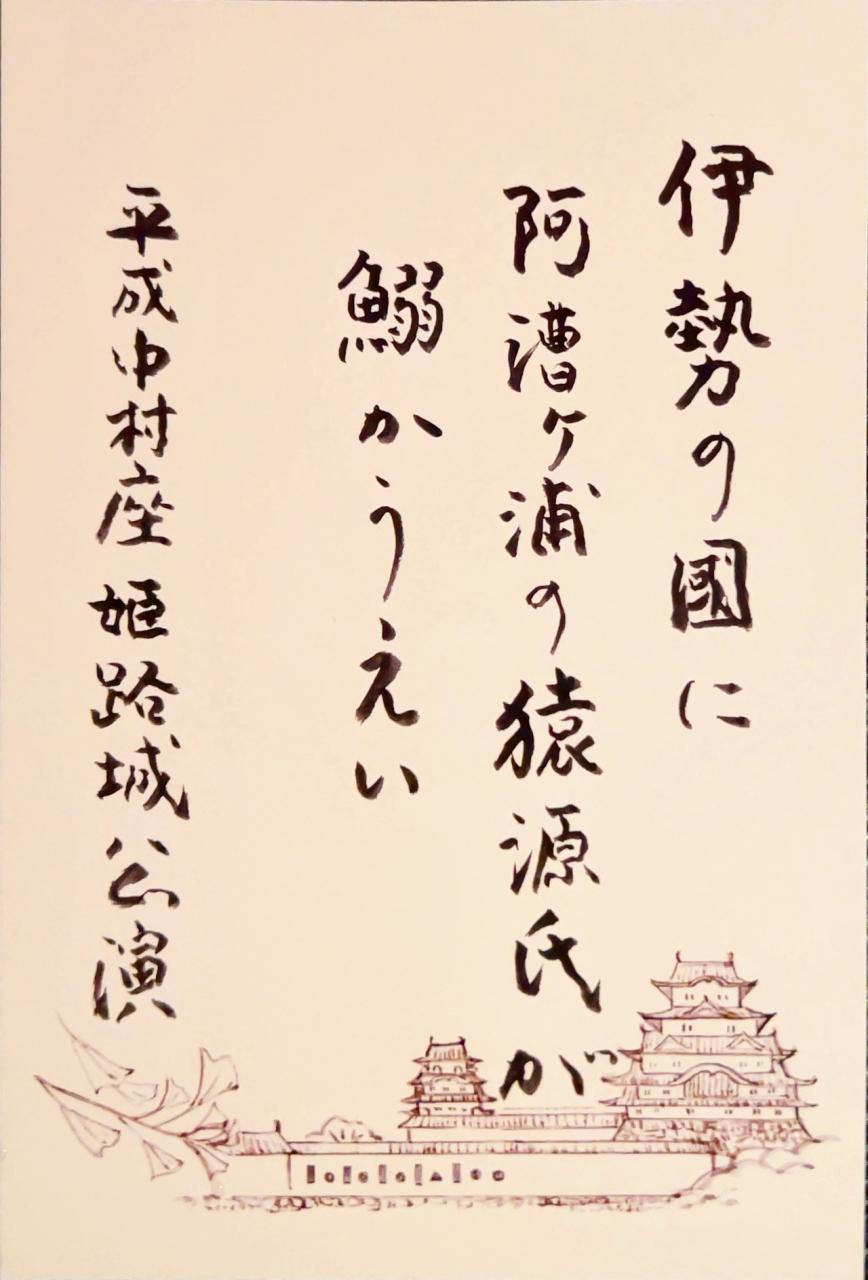 伊勢の國に
阿漕ヶ浦の猿源氏が
鰯かうえい
平成中村座 姫路城公演